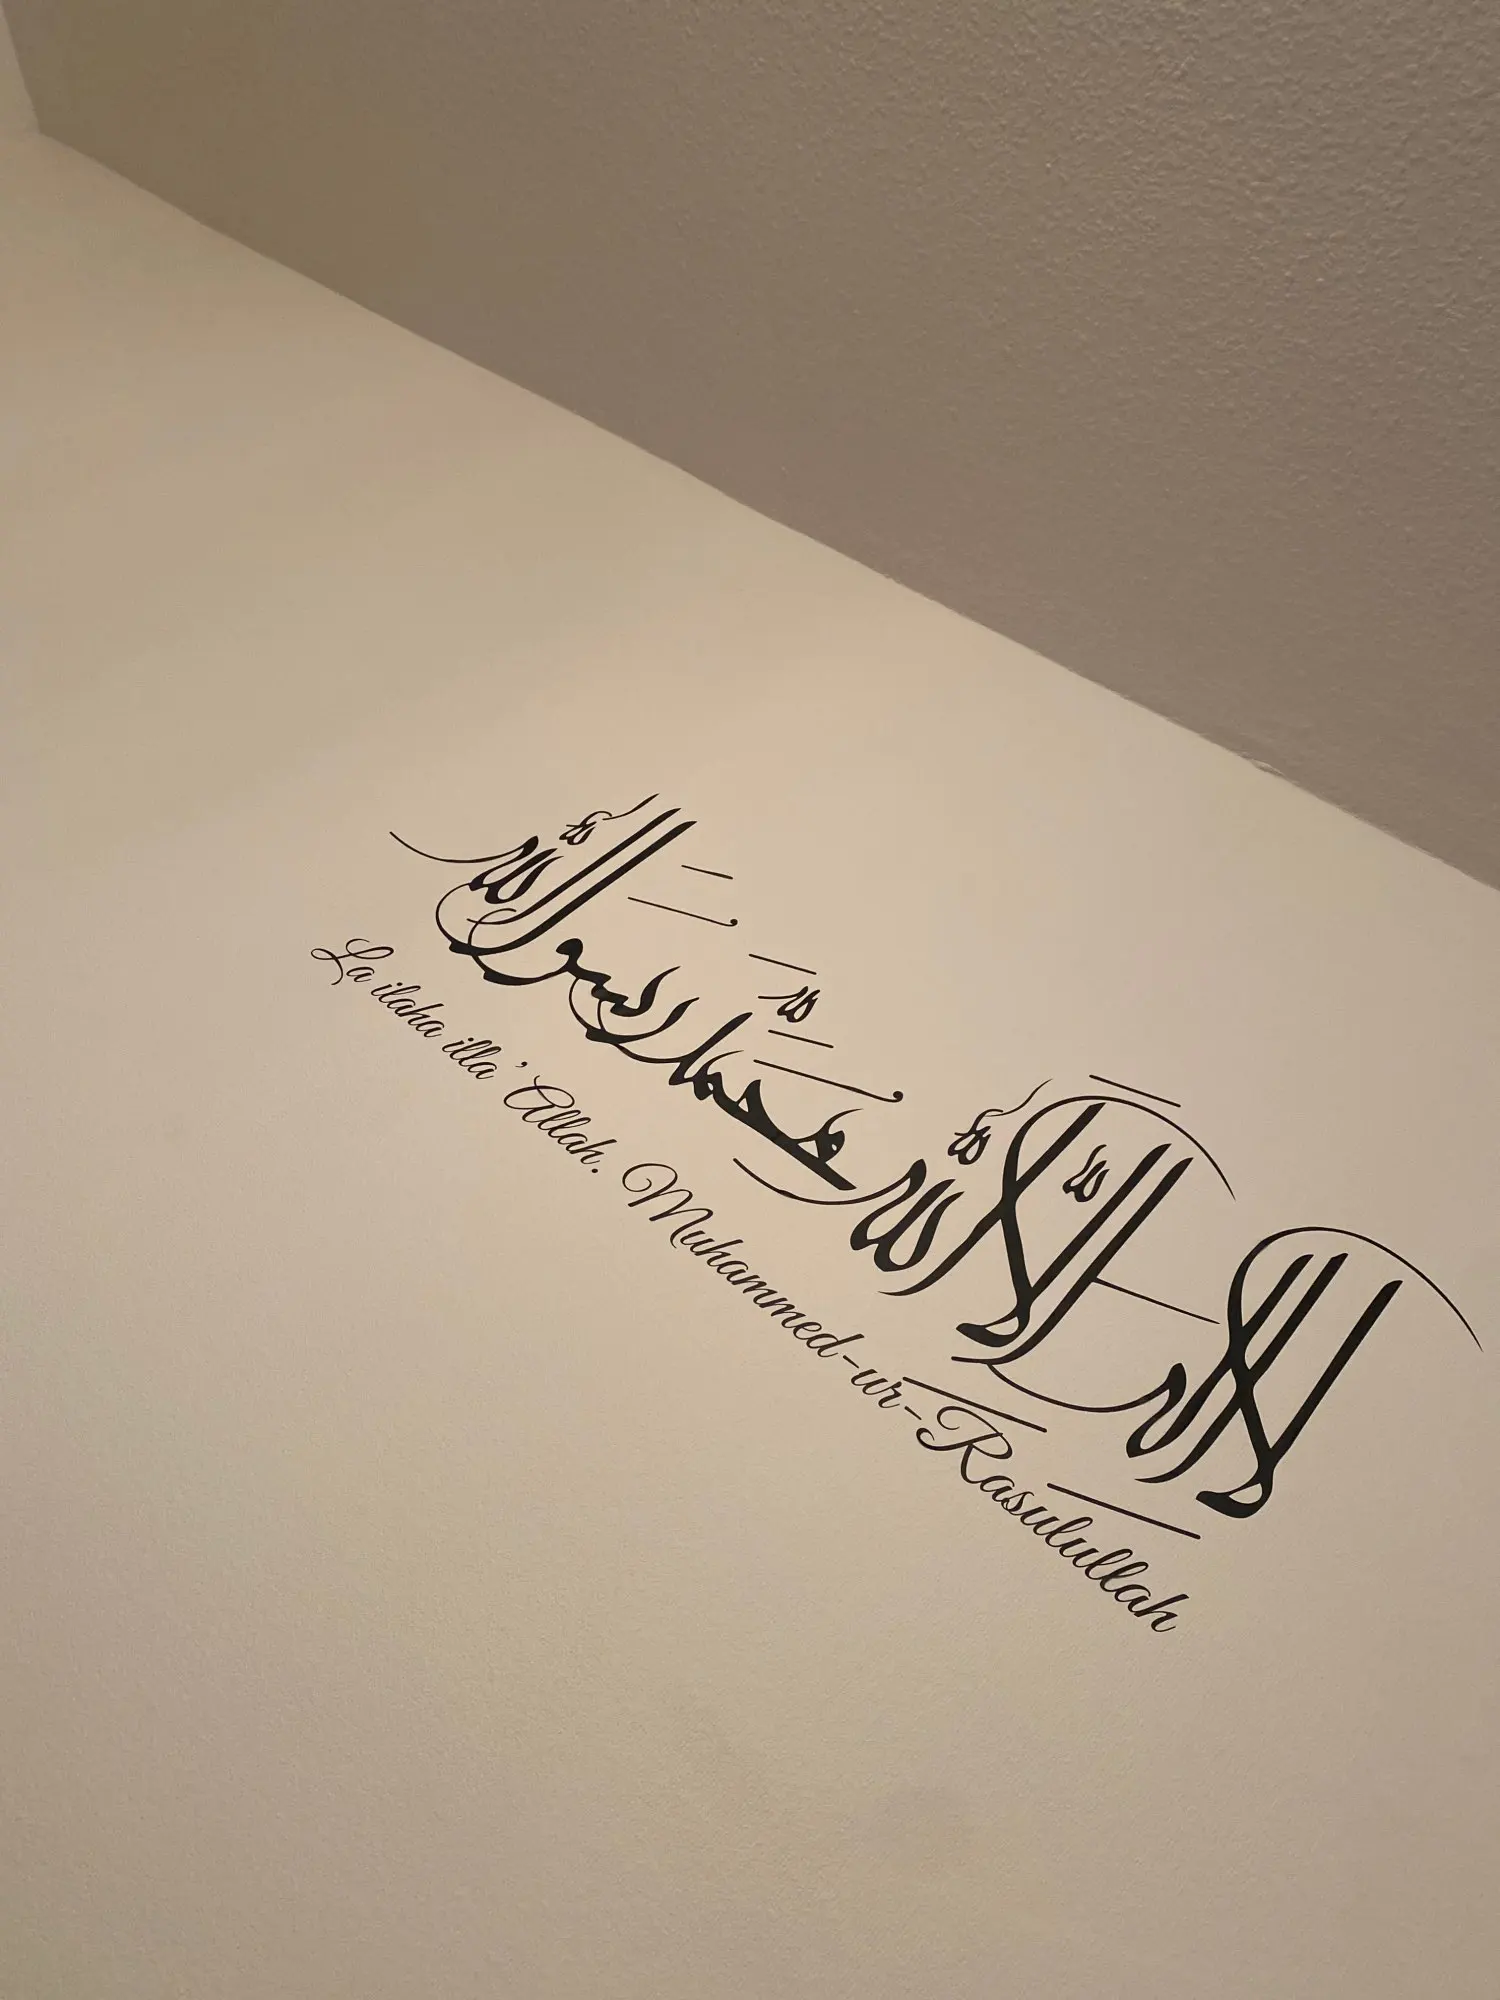 لا إله إلا الله محمد رسول الله
La ilaha illa 'Allah. Muhammed-ur-Rasulullah